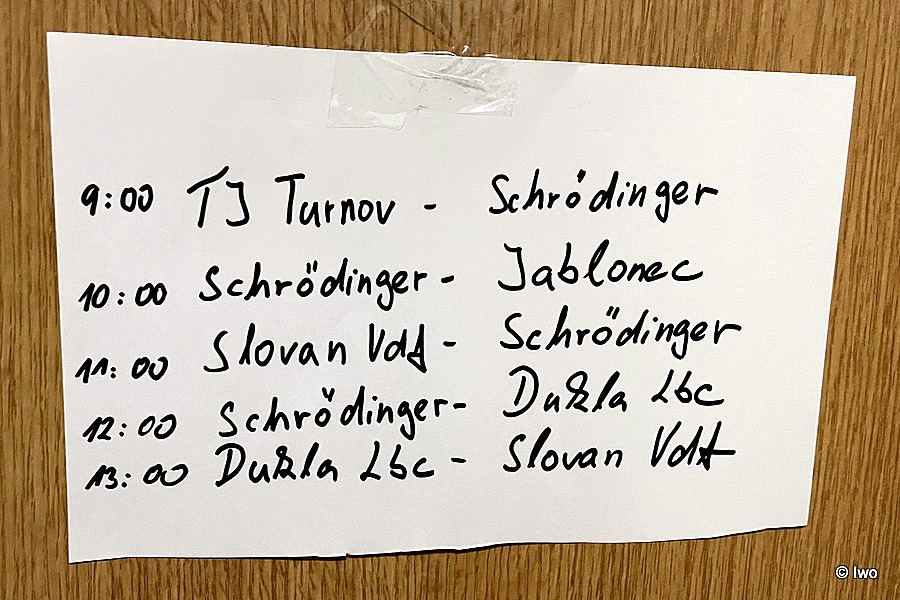 9:00 TJ Turnov - Schrödinger
10:00 Schrödinger - Jablonec
11:00 Slovan Vdf - Schrödinger
12:00 Schrödinger - Dukla Lbc
13:00 Dukla Lbc - Slovan Vdf
© Iwo